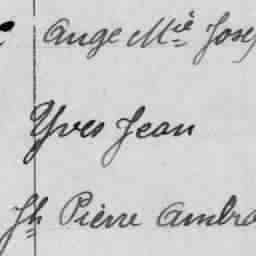 Ange Mie Jose
Yves Jean
Jh Pierre Ambro